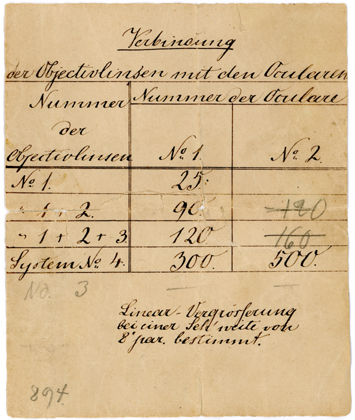 Verbindung
der Objectivlinsen mit den Ocularen
Nummer der Objectivlinsen | Nummer der Oculare
No 1. | No 2.
No 1. | 25.
" 1 + 2. | 90. | 120
" 1 + 2 + 3. | 120 | 160
System No 4. | 300. | 500.
No. 3
Linear-Vergrösserung
bei einer Sehweite von
8" par. bestimmt.
894.